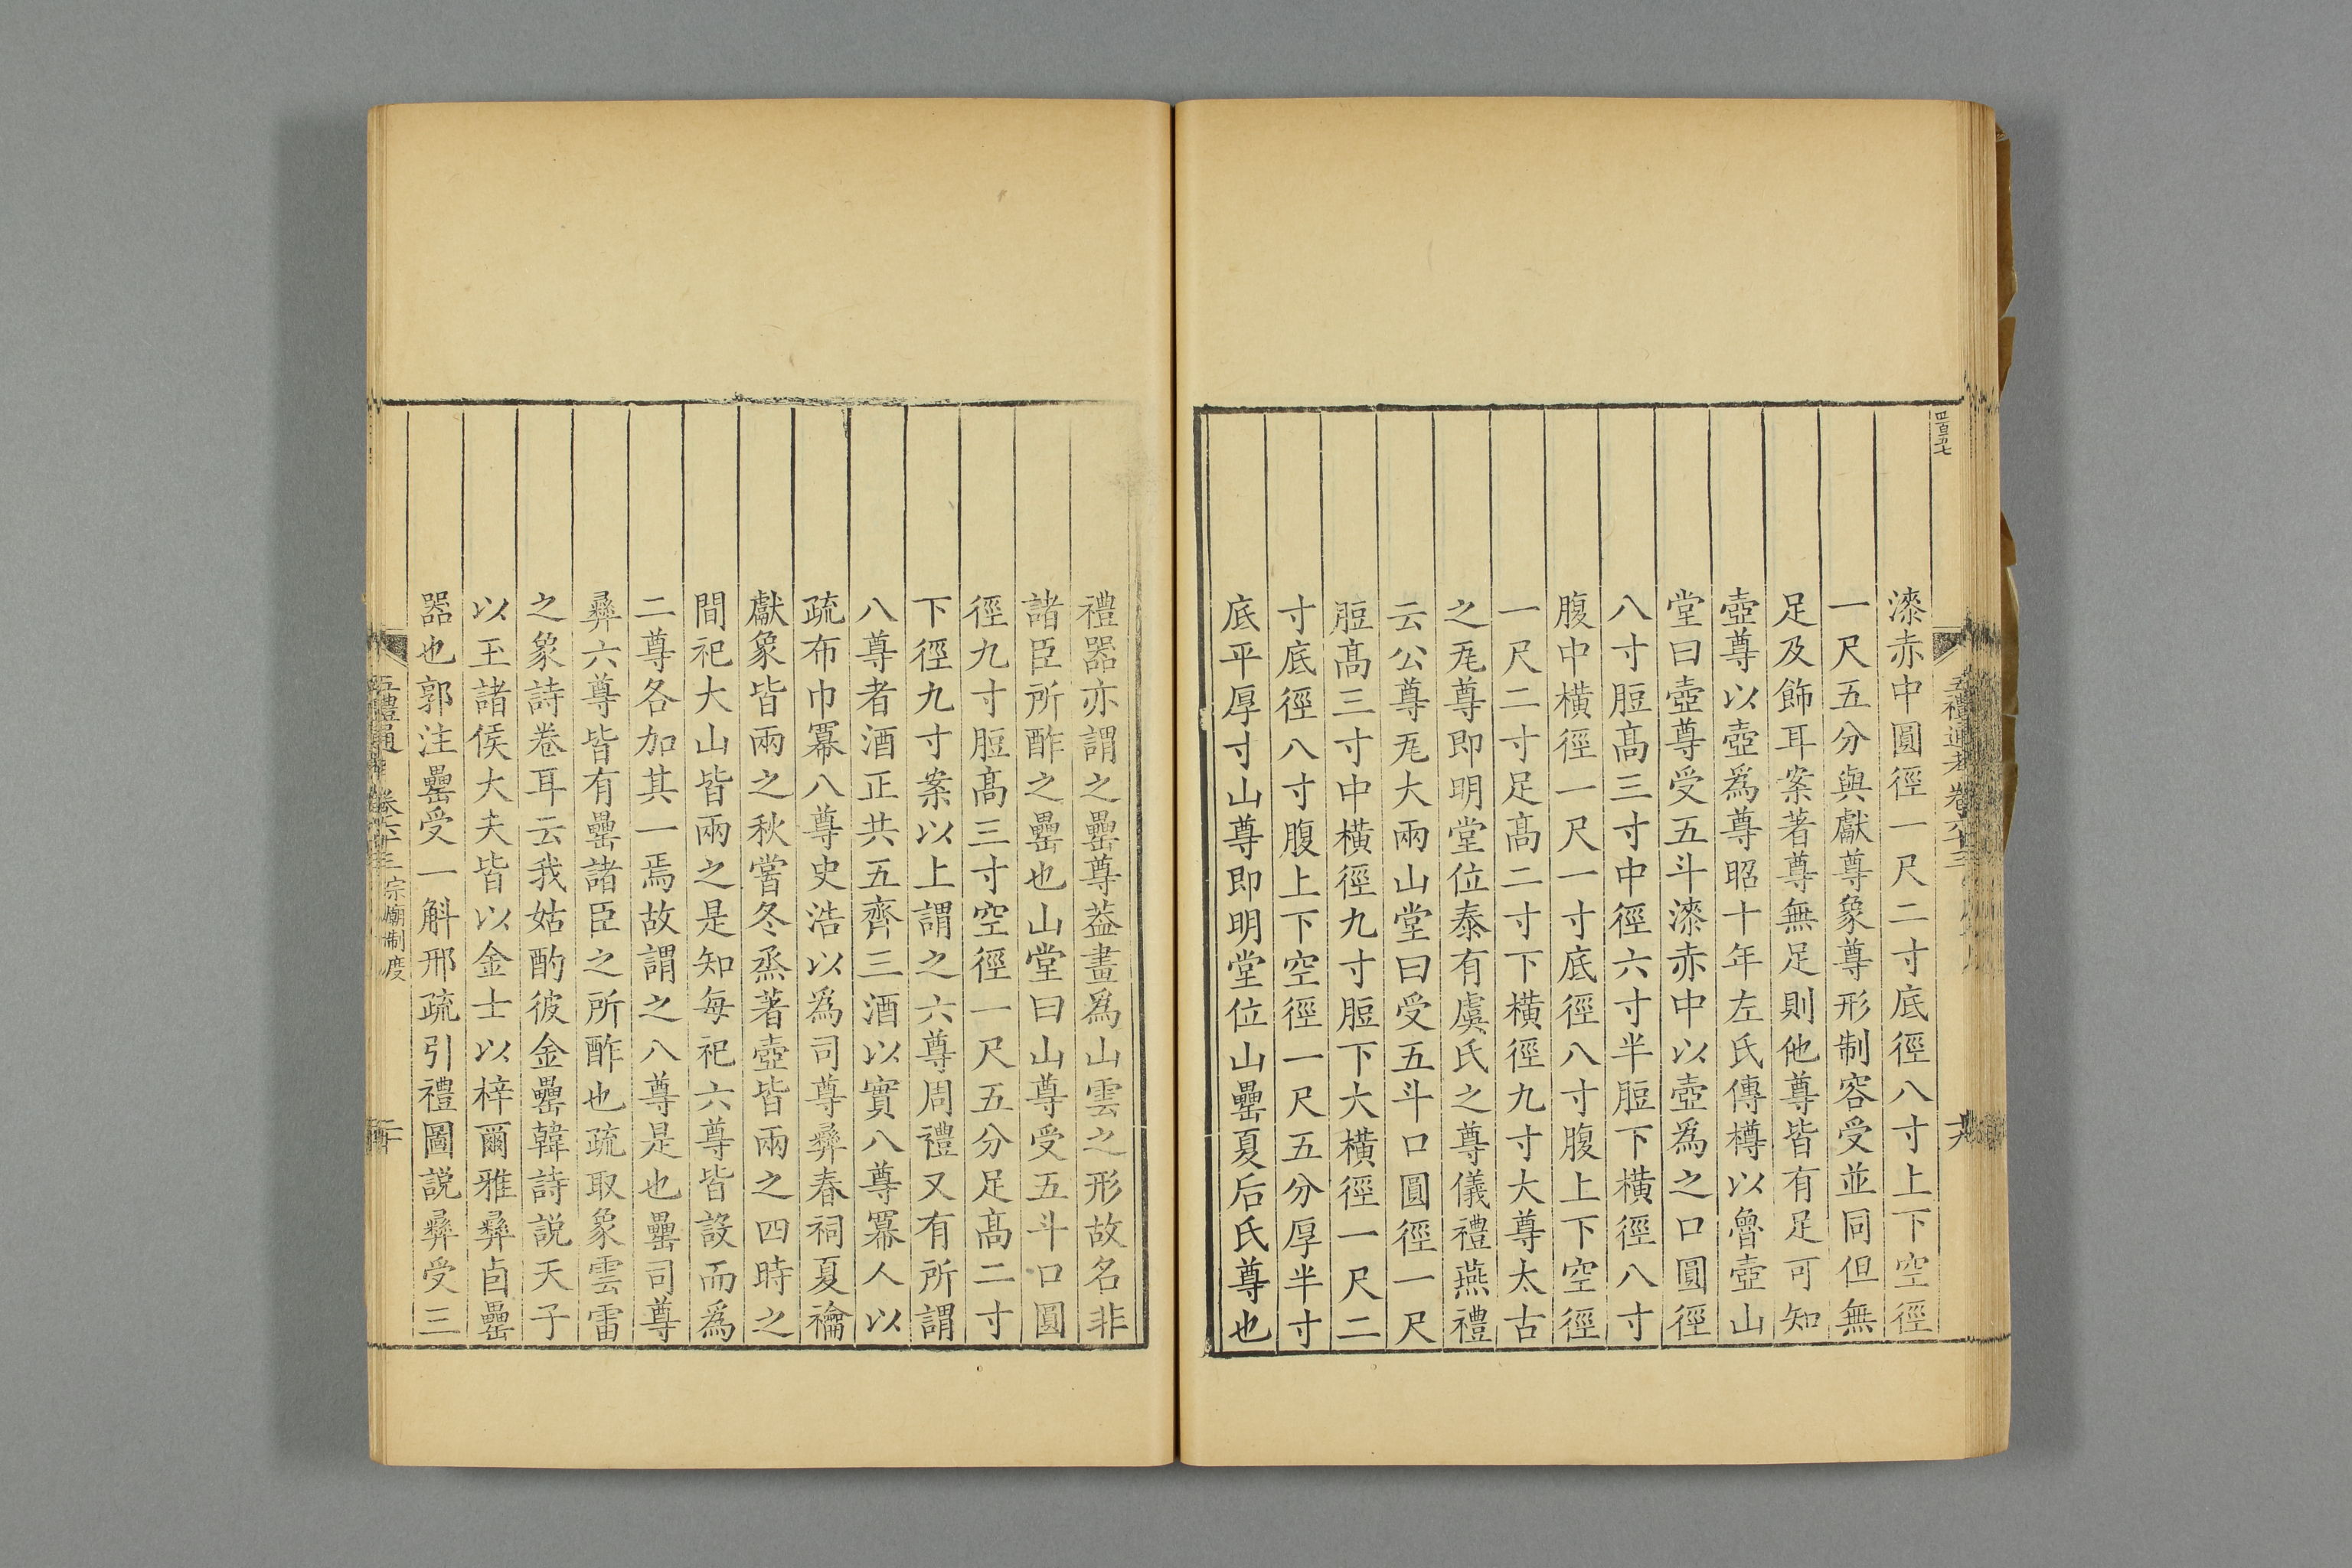 四百五七
五禮通考卷六十三
十九
漆赤中圓徑一尺二寸底徑八寸上下空徑
一尺五分與獻尊象尊形制容受並同但無
足及飾耳案著尊無足則他尊皆有足可知
壺尊以壺爲尊昭十年左氏傳樽以魯壺山
堂曰壺尊受五斗漆赤中以壺爲之口圓徑
八寸脰髙三寸中徑六寸半脰下橫徑八寸
腹中橫徑一尺一寸底徑八寸腹上下空徑
一尺二寸足髙二寸下橫徑九寸大尊太古
之瓦尊即明堂位泰有虞氏之尊儀禮燕禮
云公尊瓦大兩山堂曰受五斗口圓徑一尺
脰髙三寸中橫徑九寸脰下大橫徑一尺二
寸底徑八寸腹上下空徑一尺五分厚半寸
底平厚寸山尊即明堂位山罍夏后氏尊也
禮器亦謂之罍尊葢畫爲山雲之形故名非
諸臣所酢之罍也山堂曰山尊受五斗口圓
徑九寸脰髙三寸空徑一尺五分足髙二寸
下徑九寸案以上謂之六尊周禮又有所謂
八尊者酒正共五齊三酒以實八尊冪人以
疏布巾冪八尊史浩以爲司尊彝春祠夏禴
獻象皆兩之秋嘗冬烝著壺皆兩之四時之
間祀大山皆兩之是知每祀六尊皆設而爲
二尊各加其一焉故謂之八尊是也罍司尊
彝六尊皆有罍諸臣之所酢也疏取象雲雷
之象詩卷耳云我姑酌彼金罍韓詩説天子
以玉諸侯大夫皆以金士以梓爾雅彝卣罍
器也郭注罍受一斛邢疏引禮圖説彝受三
五禮通考 卷六十三 宗廟制度
二十